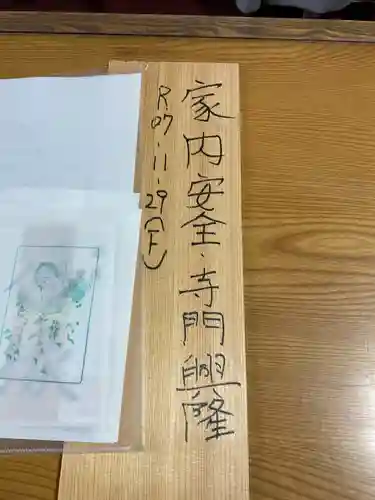 家内安全・寺門興隆
R.07.11.29(土)